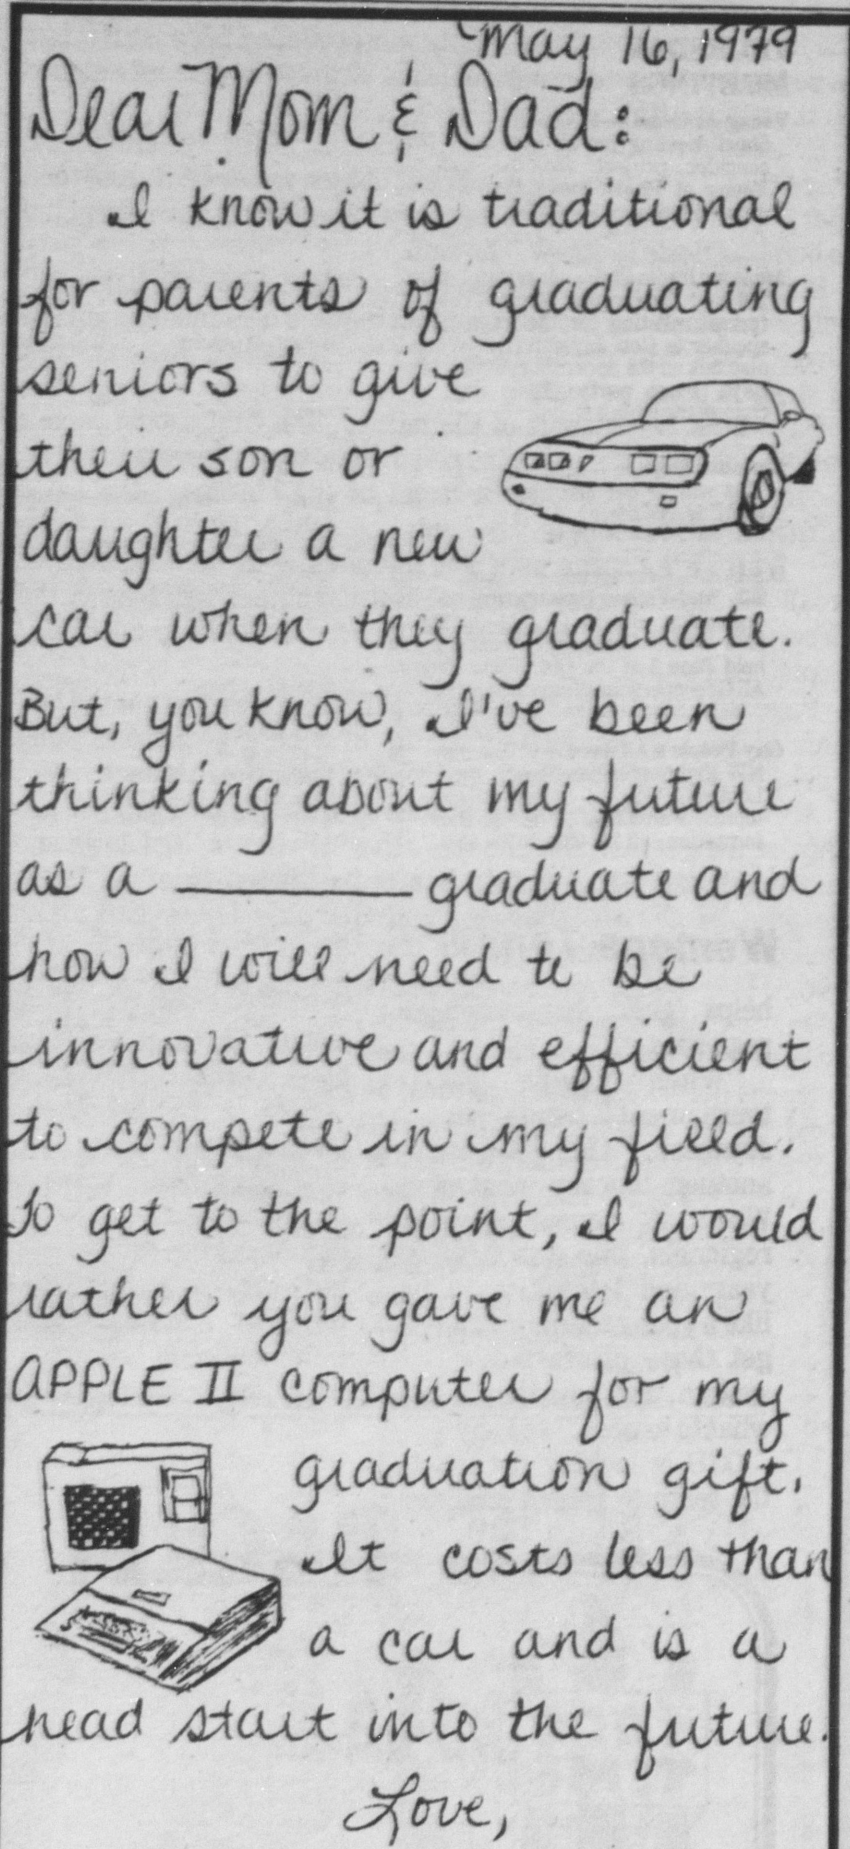 May 16, 1979
Dear Mom & Dad:
I know it is traditional
for parents of graduating
seniors to give
their son or
daughter a new
car when they graduate.
But, you know, I've been
thinking about my future
as a ________ graduate and
how I will need to be
innovative and efficient
to compete in my field.
To get to the point, I would
rather you gave me an
APPLE II computer for my
graduation gift.
It costs less than
a car and is a
head start into the future.
Love,